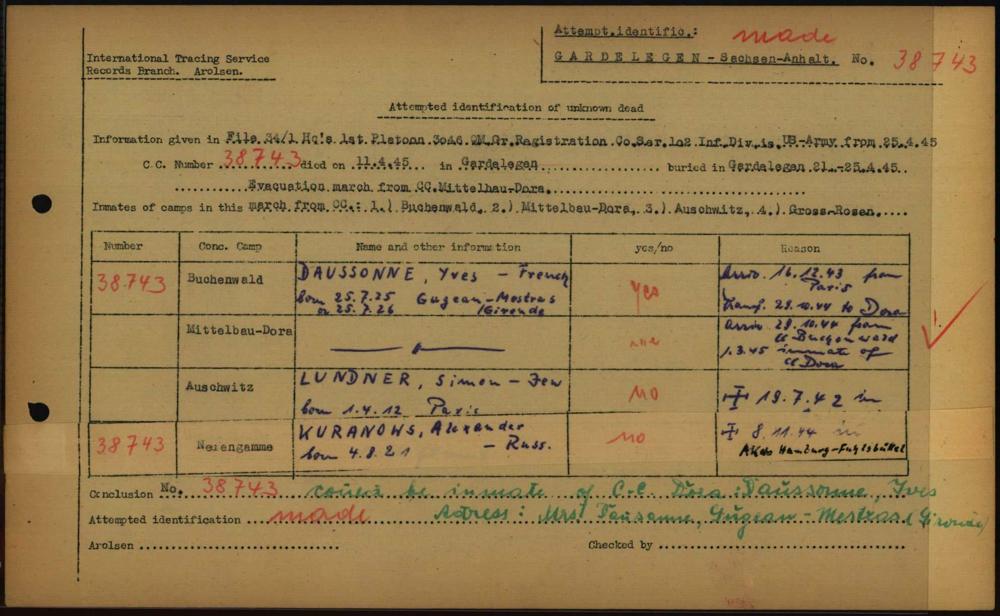 Attempt.identific.: made
International Tracing Service
Records Branch. Arolsen.
GARDELEGEN - Sachsen-Anhalt. No. 38743
Attempted identification of unknown dead
Information given in File 34/1 Hq's 1st Platoon 3046 QM Gr.Registration Co.Ser.1o2 Inf.Div.is. US-Army from 25.4.45
C.C. Number 38743 died on 11.4.45 in Gardelegen buried in Gardelegen 21.-25.4.45
Evacuation march from CC.Mittelbau-Dora.
Inmates of camps in this march from CC.: 1.) Buchenwald, 2.) Mittelbau-Dora, 3.) Auschwitz, 4.) Gross-Rosen.
Number Conc. Camp Name and other information yes/no Reason
38743 Buchenwald DAUSSONNE, Yves - French yes arriv. 16.12.43 from
born 25.7.25 Gugean-Mestras Paris
or 25.7.26 /Gironde transf. 29.10.44 to Dora
Mittelbau-Dora arriv 29.10.44 from
CC Buchenwald
1.3.45 inmate of
CC Dora
Auschwitz LUNDNER, Simon - Jew NO 19.7.42 in
born 1.4.12 Paris
38743 Neuengamme KURANOWS, Alexander NO 8.11.44 in
born 4.8.21 - Russ. AKdo Hamburg-Fuhlsbüttel
Conclusion No. 38743 be inmate of C.C. Dora: Daussonne, Yves
Attempted identification made Adress: Mrs Dausanne, Gugean-Mestras (Gironde)
Arolsen Checked by